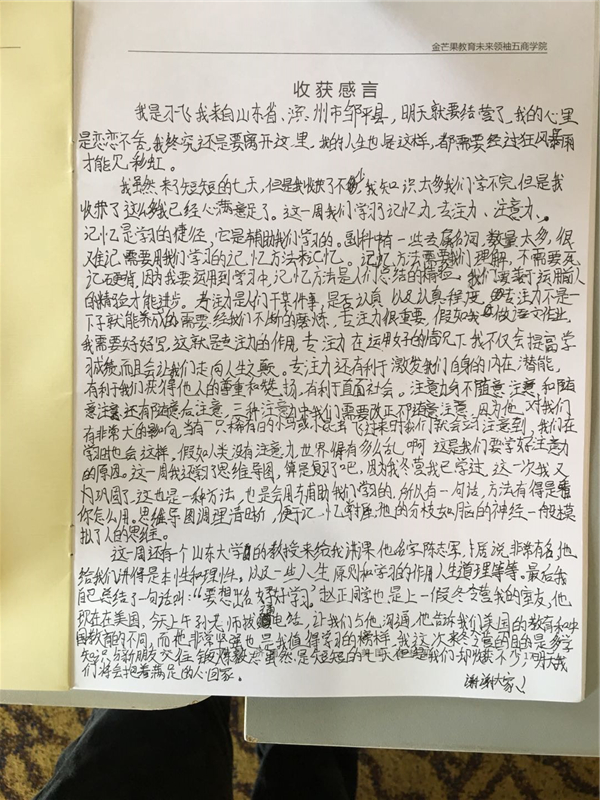 金芒果教育未来领袖五商学院
收获感言
我是不飞我来自山东省、滨州市邹平县,明天就要结营了,我的心里
是恋恋不舍,我终究还是要离开这里,我的人生也是这样,都需要经过狂风暴雨
才能见彩虹。
我虽然来了短短的七天,但是我收获了不少,我知识太多我们学不完,但是我
收获了这么多我已经心满意足了。这一周我们学习了记忆力、专注力、注意力、
记忆是学习的捷径,它是辅助我们学习的。副科中有一些专属名词,数量太多,很
难记,需要用我们学习的记忆方法来记忆。记忆方法需要我们理解,不需要死
记硬背,因为我要运用到学习中,记忆方法是人们总结的精验,我们要善于运用人
的精验才能进步。专注力是人们干某件事,是否认真,以及认真程度,专注力不是一
下子就能养成的需要经我们不断的磨炼,专注力很重要,假如我做语文作业,
我需要好好写,这就是专注力的作用,专注力在运用好的情况下我不仅会提高学
习成绩,而且会让我们走向人生之巅。专注力还有利于激发我们自身的内在潜能,
有利于我们获得他人的尊重和赞扬,有利于直面社会。注意力分不随意注意和随
意注意还有随意后注意,三种注意力中我们需要改正不随意注意,因为他对我们
有非常大的影响,当有一只稀有的小鸟或小昆虫飞过来时我们就会习注意到,我们在
学习时也会这样,假如人类没有注意力,世界得有多么乱啊,这是我们要学好注意力
的原因。这一周我还学了思维导图,算是复习了吧,因为我冬营我已学过,这一次我又
巩固了,这也是一种方法,也是会用与辅助我们学习的,所以有一句话,方法有得是看
你怎么用。思维导图调理清晰,便于记忆,
拟了人的思维。
这一周还有个山东大学的教授来给我讲课,他名字陈志军,卜居说,非常有名,他
给我们讲得是本性和理性,以及一些人生原则和学习的作用人生道理等等。最后我
自己总结了一句话叫:“要想出名好好学习。”赵正同学也是上一假冬令营我的室友,他
现在在美国,今天上午孙老师拔通电话,让我们与他沟通,他告诉我们美国的教育和中
国教育的不同,而他非常坚强也是我值得学习的榜样,我这次来冬令营的目的是多学
知识,与新朋友交往,锻炼毅志虽然是短短的七天但是我们却收获不少,明天我
们将会抱着满足的心回家。
谢谢大家!